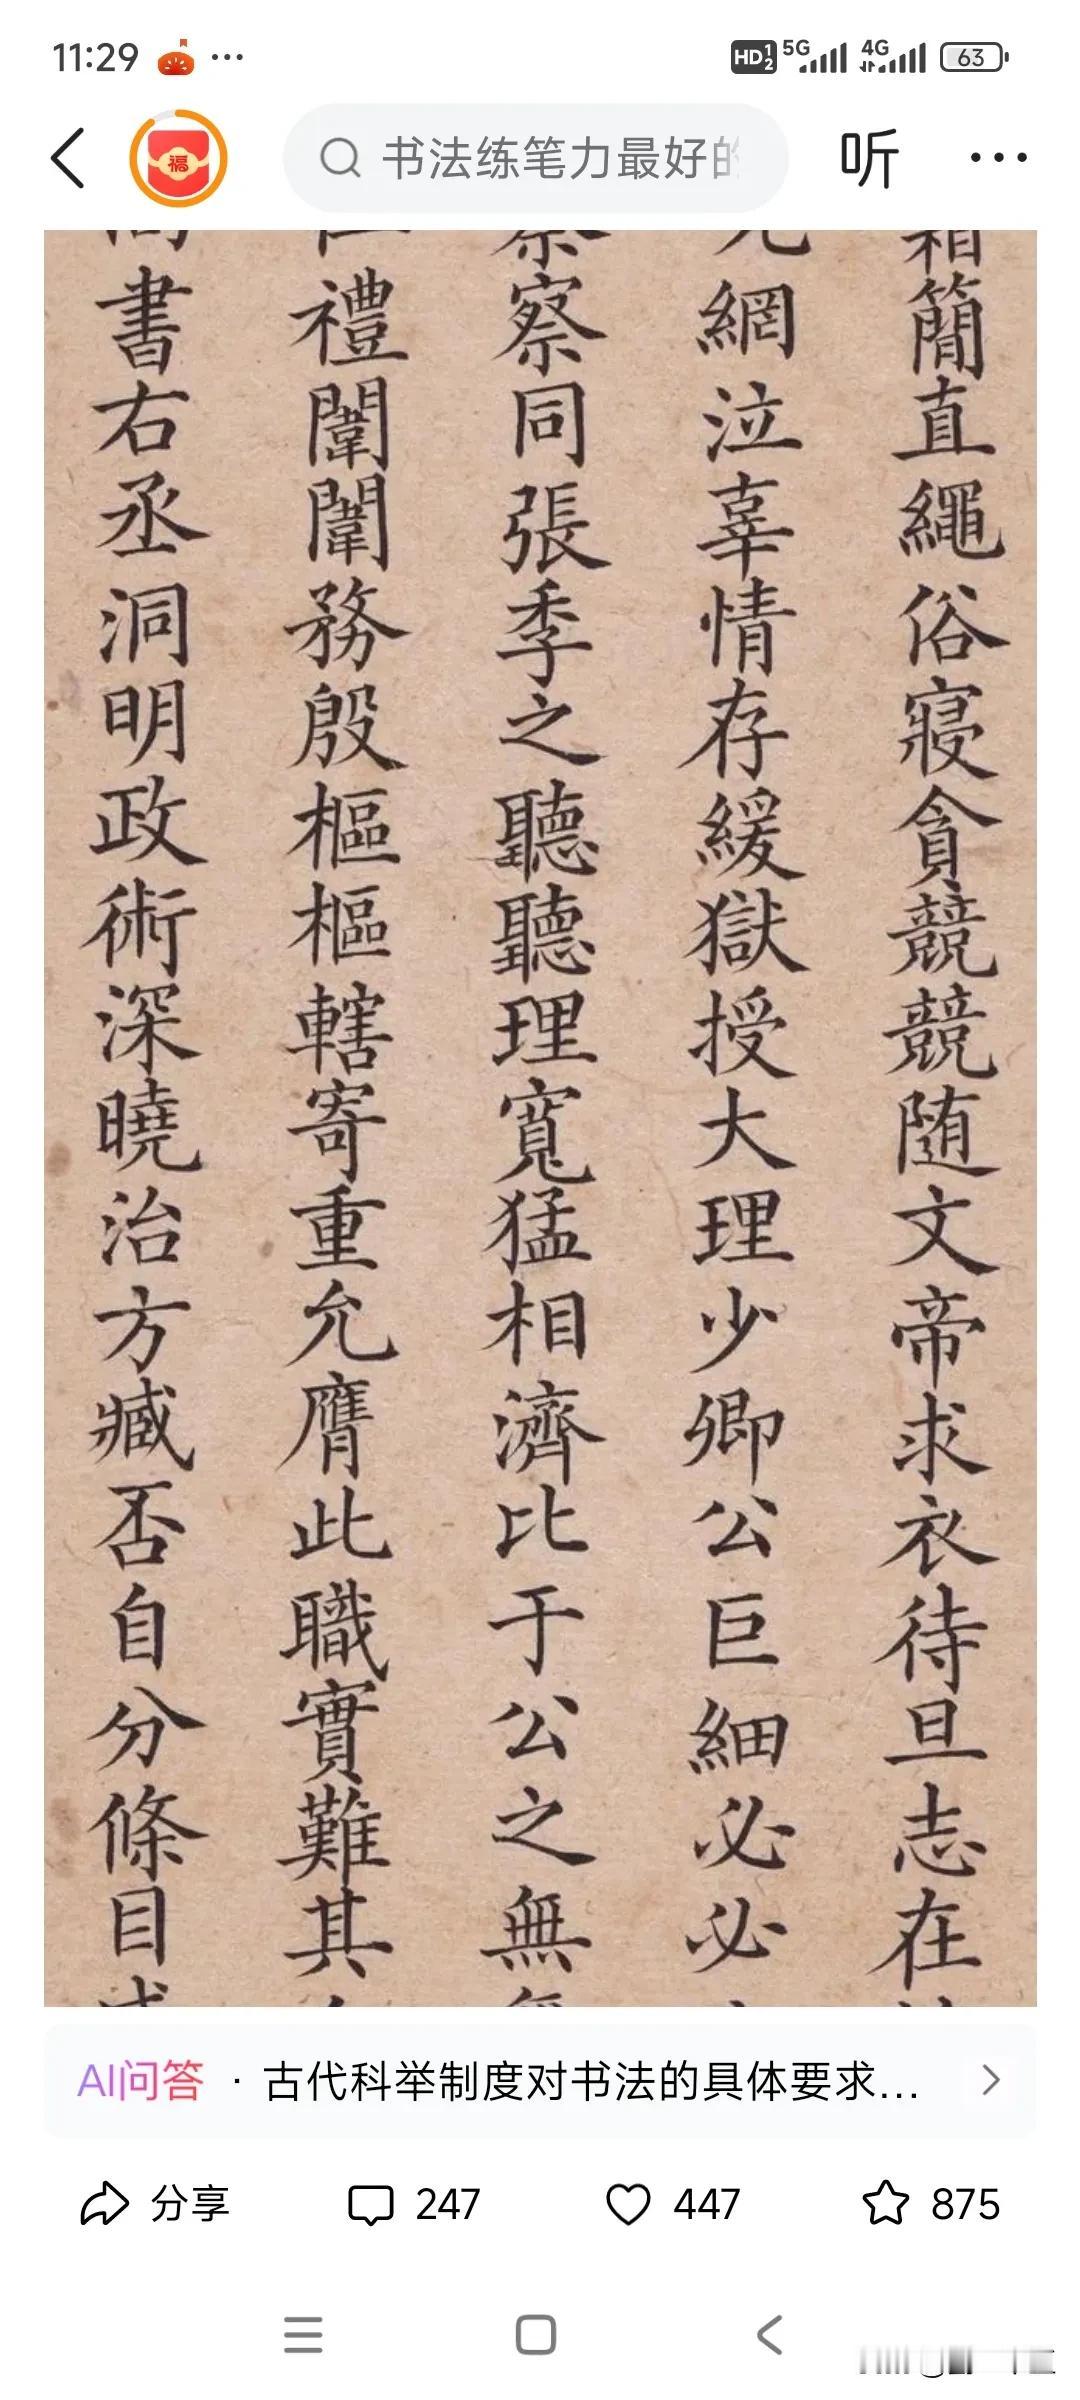 11:29
HD 1 2 5G 4G 63
福
书法练笔力最好的
听
箱簡直繩俗寢貪競競随文帝求衣待旦志在
網泣辜情存緩獄授大理少卿公巨細必必
察察同張季之聽聽理寬猛相濟比于公之無
禮闈闈務殷樞樞轄寄重允膺此職實難其
書右丞洞明政術深曉治方臧否自分條目
AI问答 · 古代科举制度对书法的具体要求...
分享 247 447 875